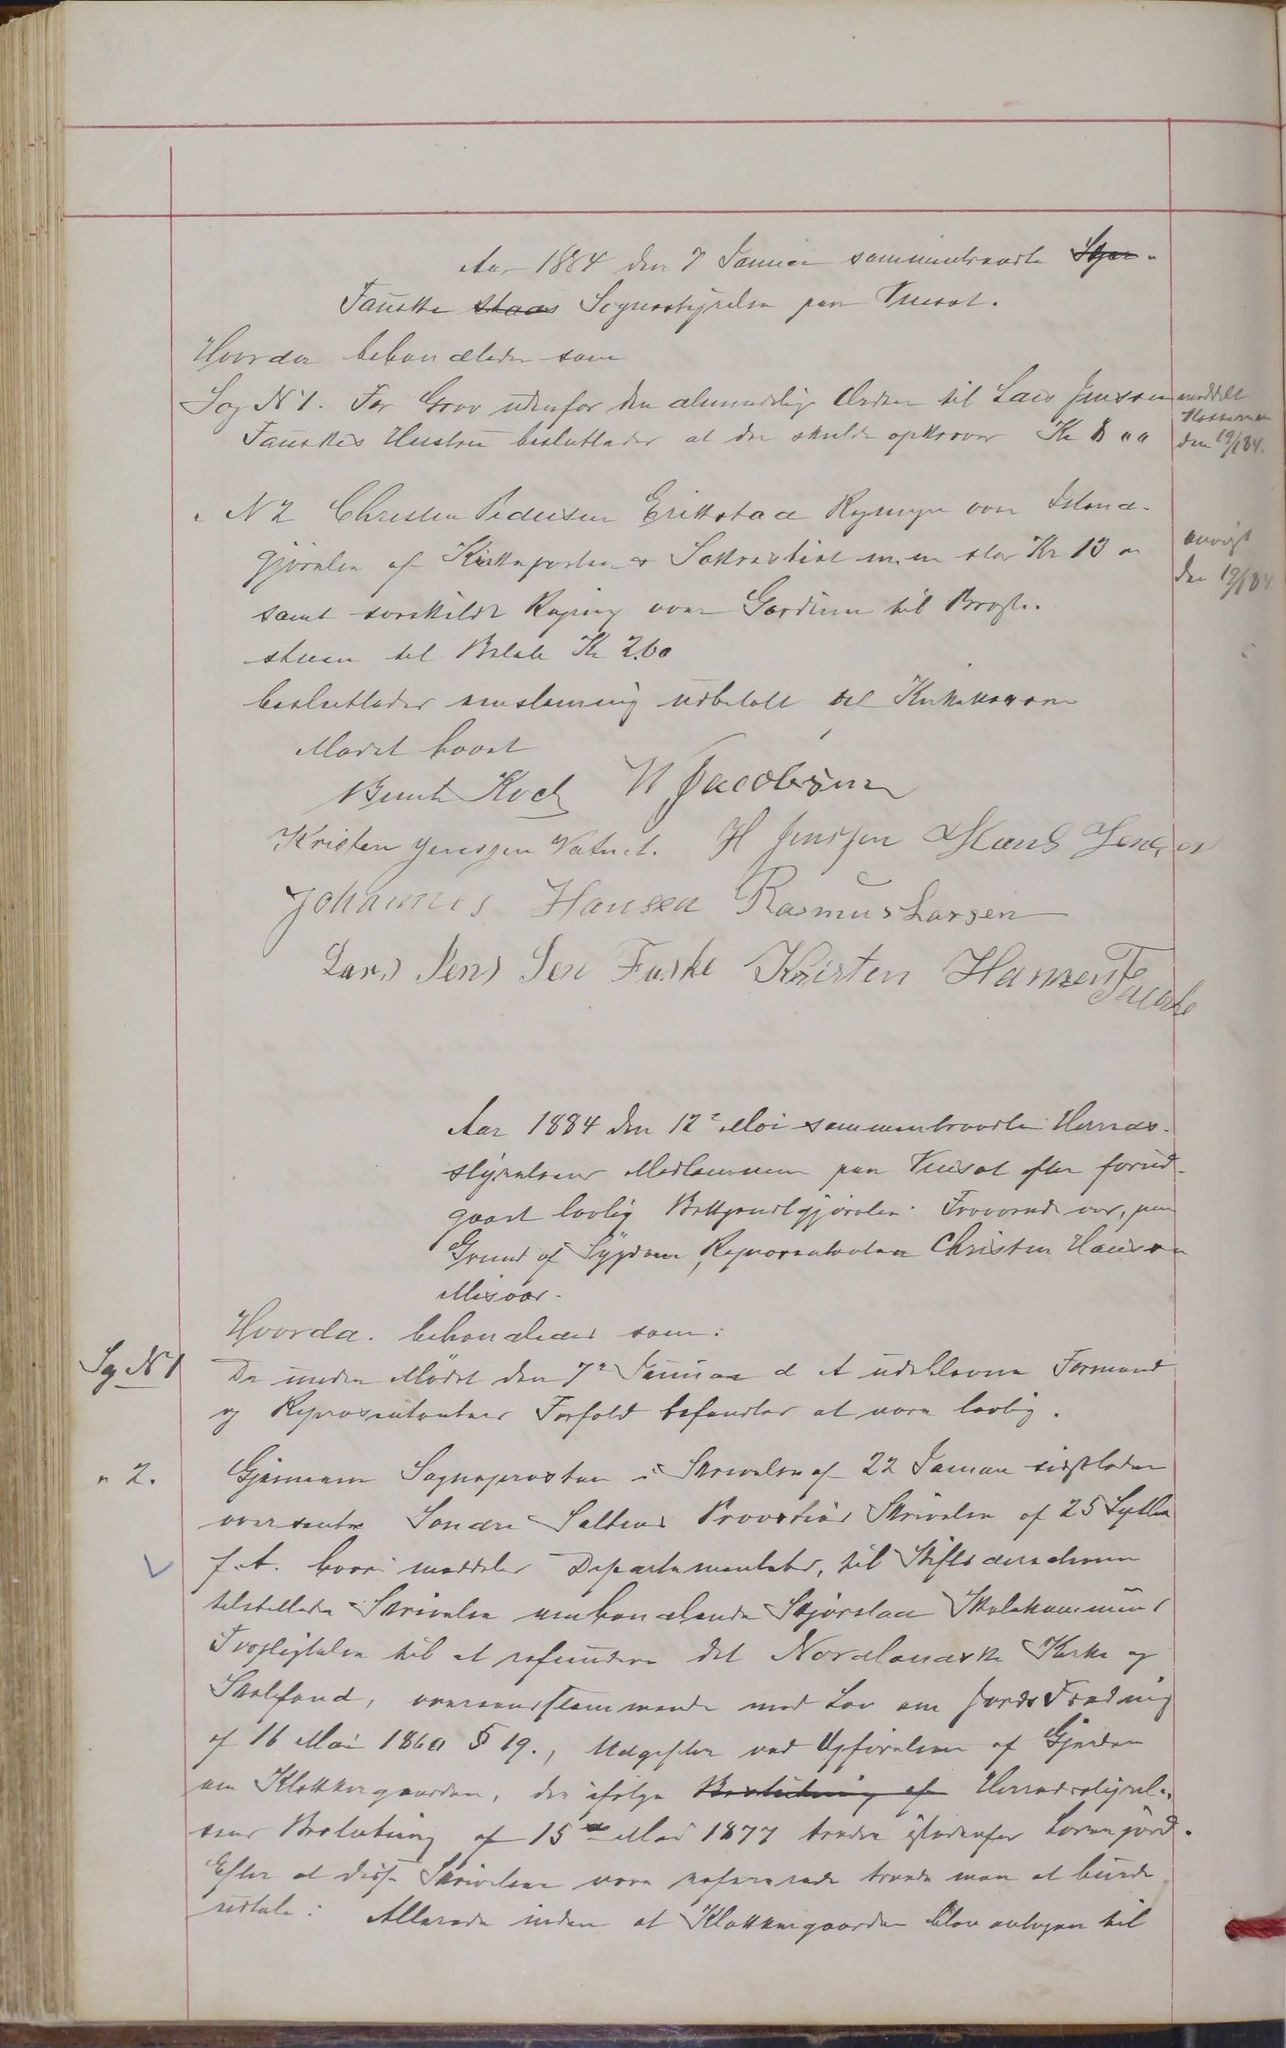 Aar 1884 den 7 Januar sammentraadte Styr-
Fauske Sogнеstyrelse paa Tusvat.
Hvorda behandledes som
Sag N 1. For Grav udenfor den almindelige Orden til Lars Jensen
Fauskes Hustru besluttedes at der skulde opkræves Kr 8 " "
meddelt
Kasserer
den 19/1 84.
" N 2 Christen Pedersen Erikstad Regning over Istand-
gjørelse af Kirkeporten & Sakrastiet m. m. stor Kr 13 "
samt særskilt Regning over Gardiner til Præste-
stuen til Beløb Kr 2.60
besluttedes enstemmig udbetalt ved Kirkekassereren
anvist
den 19/1 84
Mødet hævet
Bernt Koch N Jacobsen
Kristen Jenssen Vatnet. H Jenssen Hans Jensen
Johannes Hansen Rasmus Larsen
Lars Jens Sen Fuske Kristen Hansen Fauske
Aar 1884 den 12te Mai sammentraadte Herreds-
styrelsens Medlemmer paa Tusvat efter forud-
gaaet lovlig Bekjendtgjørelse. Fraværende var, paa
Grund af Sygdom, Repræsentanten Christen Hansen
Misvær.
Hvorda. behandledes som:
Sag N 1
De under Mødet den 7de Januar d A udeblevne Formænd
og Repræsentanters Forfald befandtes at være lovlig.
" 2.
Gjennem Sognepresten i Skrivelse af 22 Januar sidstleden
oversendtes Søndre Saltens Provsties Skrivelse af 25 Juli
f. A. hvori meddeles Departementets, til Stiftsdirectionen
tilstillede Skrivelse omhandlende Skjerstad Skolekommunes
Forpligtelse til at refundere det Nordlandske Kirke og
Skolefond, overensstemmende med Lov om Jords Fredning
af 16 Mai 1860 § 19., Udgifter ved Opførelsen af Gjerder
om Klokkergaarden, der ifølge Beslutning af Herredsstyrel-
sens Beslutning af 15de Mai 1877 træder istedenfor Lovens jord.
Efter at disse Skrivelser vare refererede troede man at burde
udtale: Allerede inden at Klokkergaarden blev antagen til